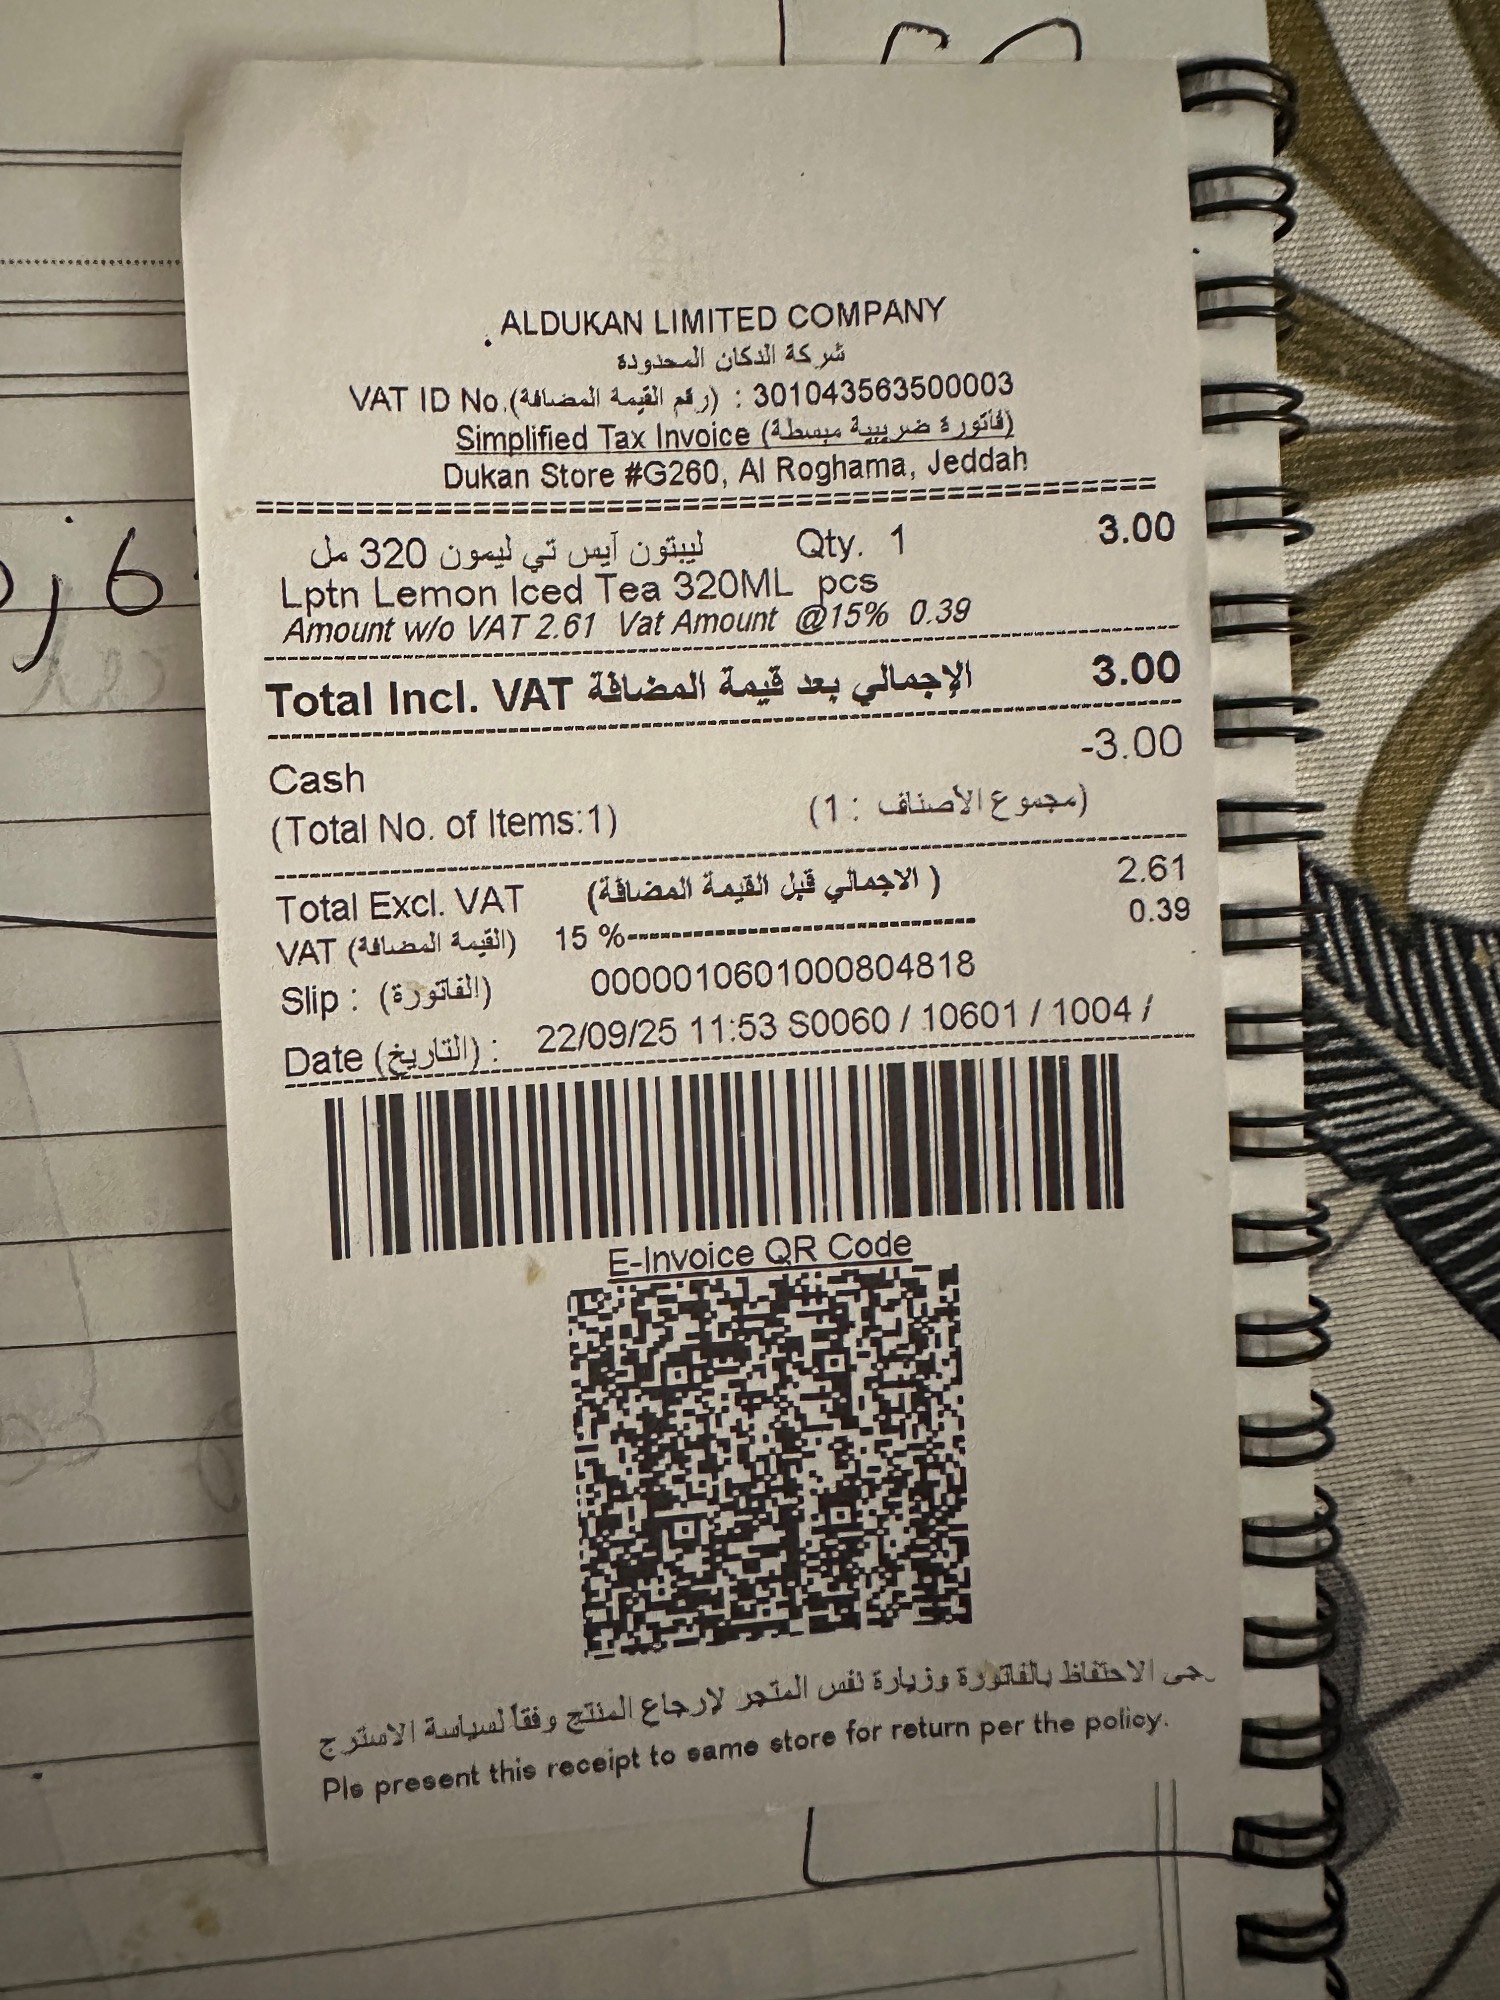 ALDUKAN LIMITED COMPANY
شركة الدكان المحدودة
VAT ID No.(رقم القيمة المضافة) : 301043563500003
Simplified Tax Invoice (فاتورة ضريبية مبسطة)
Dukan Store #G260, Al Roghama, Jeddah
ليبتون آيس تي ليمون 320 مل Qty. 1 3.00
Lptn Lemon Iced Tea 320ML pcs
Amount w/o VAT 2.61 Vat Amount @15% 0.39
Total Incl. VAT الإجمالي بعد قيمة المضافة 3.00
Cash -3.00
(Total No. of Items:1) (مجموع الأصناف : 1)
Total Excl. VAT (الاجمالي قبل القيمة المضافة ) 2.61
VAT (القيمة المضافة) 15 %------------------------------ 0.39
Slip : (الفاتورة) 0000010601000804818
Date (التاريخ) : 22/09/25 11:53 S0060 / 10601 / 1004 /
E-Invoice QR Code
جى الاحتفاظ بالفاتورة وزيارة نفس المتجر لإرجاع المنتج وفقاً لسياسة الاسترج
Pls present this receipt to same store for return per the policy.